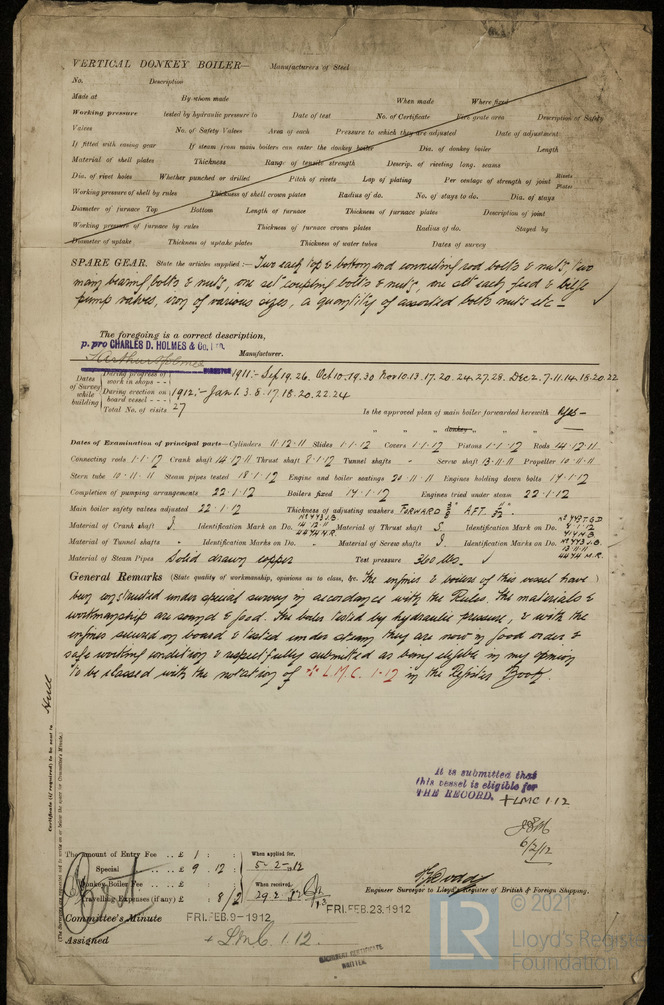 VERTICAL DONKEY BOILER— Manufacturers of Steel
No. Description
Made at By whom made When made Where fixed
Working pressure tested by hydraulic pressure to Date of test No. of Certificate Fire grate area Description of Safety
Valves No. of Safety Valves Area of each Pressure to which they are adjusted Date of adjustment
If fitted with easing gear If steam from main boilers can enter the donkey boiler Dia. of donkey boiler Length
Material of shell plates Thickness Range of tensile strength Descrip. of riveting long. seams
Dia. of rivet holes Whether punched or drilled Pitch of rivets Lap of plating Per centage of strength of joint Rivets Plates
Working pressure of shell by rules Thickness of shell crown plates Radius of do. No. of stays to do. Dia. of stays
Diameter of furnace Top Bottom Length of furnace Thickness of furnace plates Description of joint
Working pressure of furnace by rules Thickness of furnace crown plates Radius of do. Stayed by
Diameter of uptake Thickness of uptake plates Thickness of water tubes Dates of survey
SPARE GEAR. State the articles supplied:— Two each top & bottom end connecting rod bolts & nuts, two
main bearing bolts & nuts, one set coupling bolts & nuts, one set each feed & bilge
pump valves, iron of various sizes, a quantity of assorted bolts nuts etc —
The foregoing is a correct description,
p. pro CHARLES D. HOLMES & Co. Ltd.
Arthur Holmes DIRECTOR Manufacturer.
Dates of Survey while building
During progress of work in shops - - 1911:- Sep 19. 26. Oct 10. 19. 30 Nov 10. 13. 17. 20. 24. 27. 28. Dec 2. 7. 11. 14. 18. 20. 22
During erection on board vessel - - - 1912:- Jan 1. 3. 8. 17. 18. 20. 22. 24
Total No. of visits 27
Is the approved plan of main boiler forwarded herewith Yes
" " donkey " "
Dates of Examination of principal parts—Cylinders 11.12.11 Slides 1.1.12 Covers 1.1.12 Pistons 1.1.12 Rods 14.12.11
Connecting rods 1.1.12 Crank shaft 14.12.11 Thrust shaft 8.1.12 Tunnel shafts " Screw shaft 13.11.11 Propeller 10.11.11
Stern tube 10.11.11 Steam pipes tested 18.1.12 Engine and boiler seatings 20.11.11 Engines holding down bolts 17.1.12
Completion of pumping arrangements 22.1.12 Boilers fixed 17.1.12 Engines tried under steam 22.1.12
Main boiler safety valves adjusted 22.1.12 Thickness of adjusting washers FORWARD AFT
Material of Crank shaft Identification Mark on Do. Material of Thrust shaft S. Identification Mark on Do.
Material of Tunnel shafts " Identification Marks on Do. Material of Screw shafts Identification Marks on Do.
Material of Steam Pipes Solid drawn copper Test pressure 360 lbs.
General Remarks (State quality of workmanship, opinions as to class, &c. The engines & boilers of this vessel have
been constructed under special survey in accordance with the Rules. The materials &
workmanship are sound & good. The boiler tested by hydraulic pressure, & with the
engines secured on board & tested under steam they are now in good order &
safe working condition & respectfully submitted as being eligible in my opinion
to be classed with the notation of + L.M.C. 1.12 in the Register Book.
Certificate (if required) to be sent to Hull
(The Surveyors are requested not to write on or below the space for Committee's Minute.)
It is submitted that
this vessel is eligible for
THE RECORD. + LMC 1.12
6/2/12
The amount of Entry Fee .. £ 1 : : When applied for,
Special .. £ 9 . 12 : 5.2.12
Donkey Boiler Fee .. £ : : When received,
Travelling Expenses (if any) £ : 8/2
Engineer Surveyor to Lloyd's Register of British & Foreign Shipping.
Committee's Minute FRI. FEB. 9-1912 FRI. FEB. 23. 1912
Assigned + LMC 1.12.
MACHINERY CERTIFICATE
WRITTEN.
LR
© 2021
Lloyd's Register
Foundation